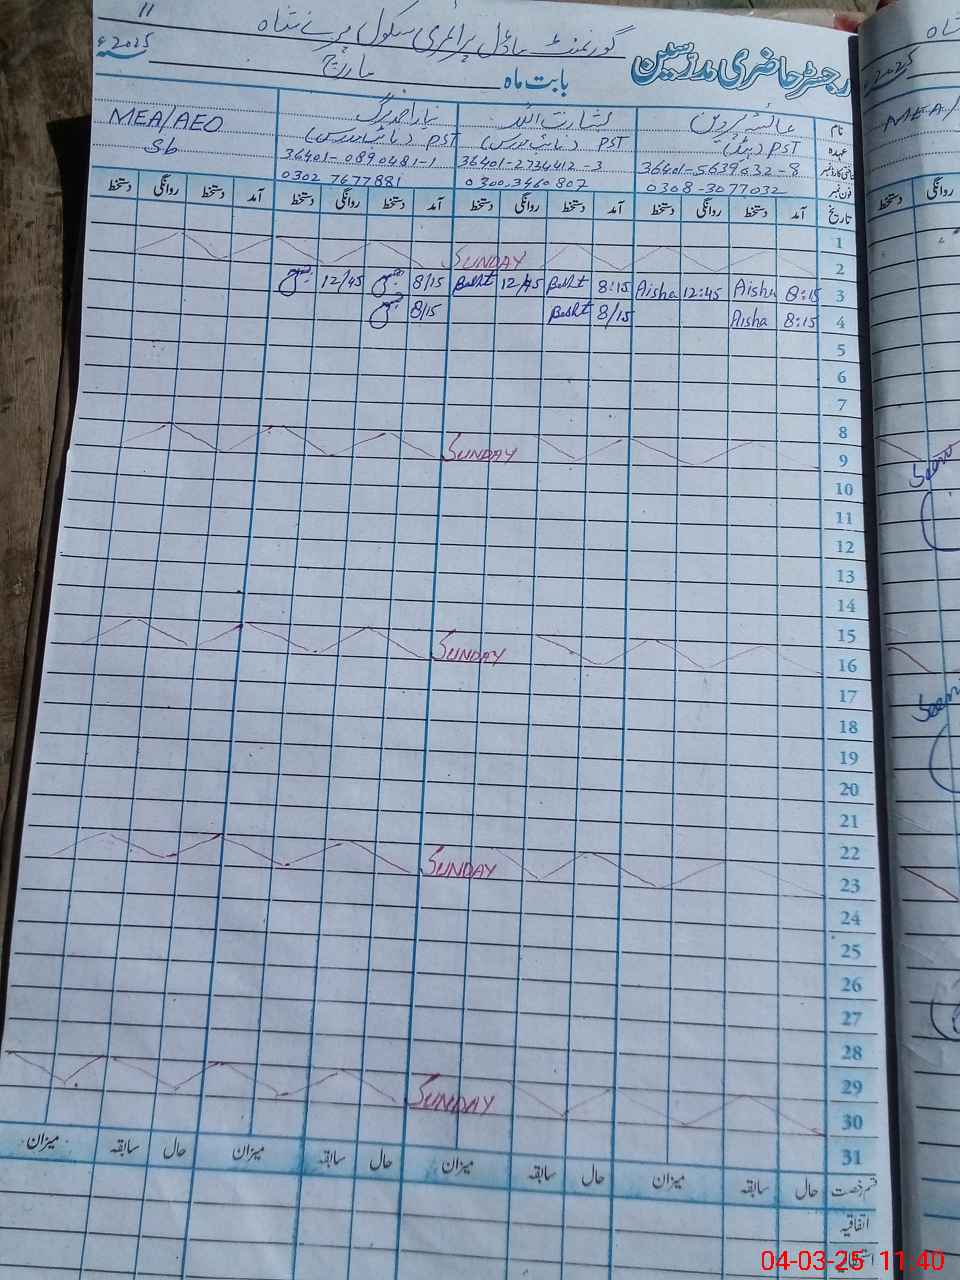 11
گورنمنٹ ماڈل پرائمری سکول
رجسٹر حاضری مدرسین بابت ماہ مارچ سنہ 2025ء
نام عائشہ پروین بشارت اللہ MEA/AEO
عہدہ PST (ہیڈ) PST PST Sb
36401-5639032-8 36401-2734412-3 36401-0890481-1
فون نمبر 0308-3077032 0300-3460802 0302 7677881
تاریخ آمد دستخط روانگی دستخط آمد دستخط روانگی دستخط آمد دستخط روانگی دستخط آمد دستخط روانگی دستخط
1
2 SUNDAY
3 8:15 Aisha 12:45 Aisha 8:15 Basht 12/45 Basht 8/15 12/45
4 8:15 Aisha 8/15 Basht 8/15
5
6
7
8
9 SUNDAY
10
11
12
13
14
15
16 SUNDAY
17
18
19
20
21
22
23 SUNDAY
24
25
26
27
28
29
30 SUNDAY
31
قسم رخصت حال سابقہ میزان حال سابقہ میزان حال سابقہ میزان حال سابقہ میزان
اتفاقیہ
04-03-25 11:40
2025
MEA/
روانگی دستخط